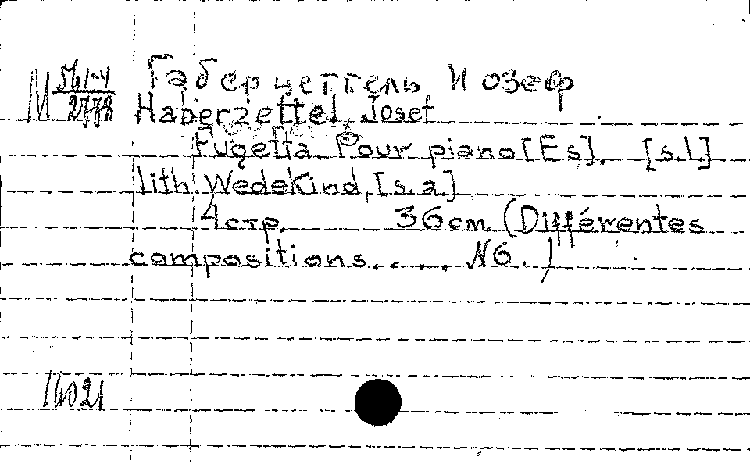 М 561-4/2778
Габерцеттель Иозеф
Haberzettel, Josef
Fugetta. Pour piano [Es]. [s.l.]
lith. Wedekind, [s.a.]
4 стр. 36 cm. (Différentes
compositions.... N6.)
16021